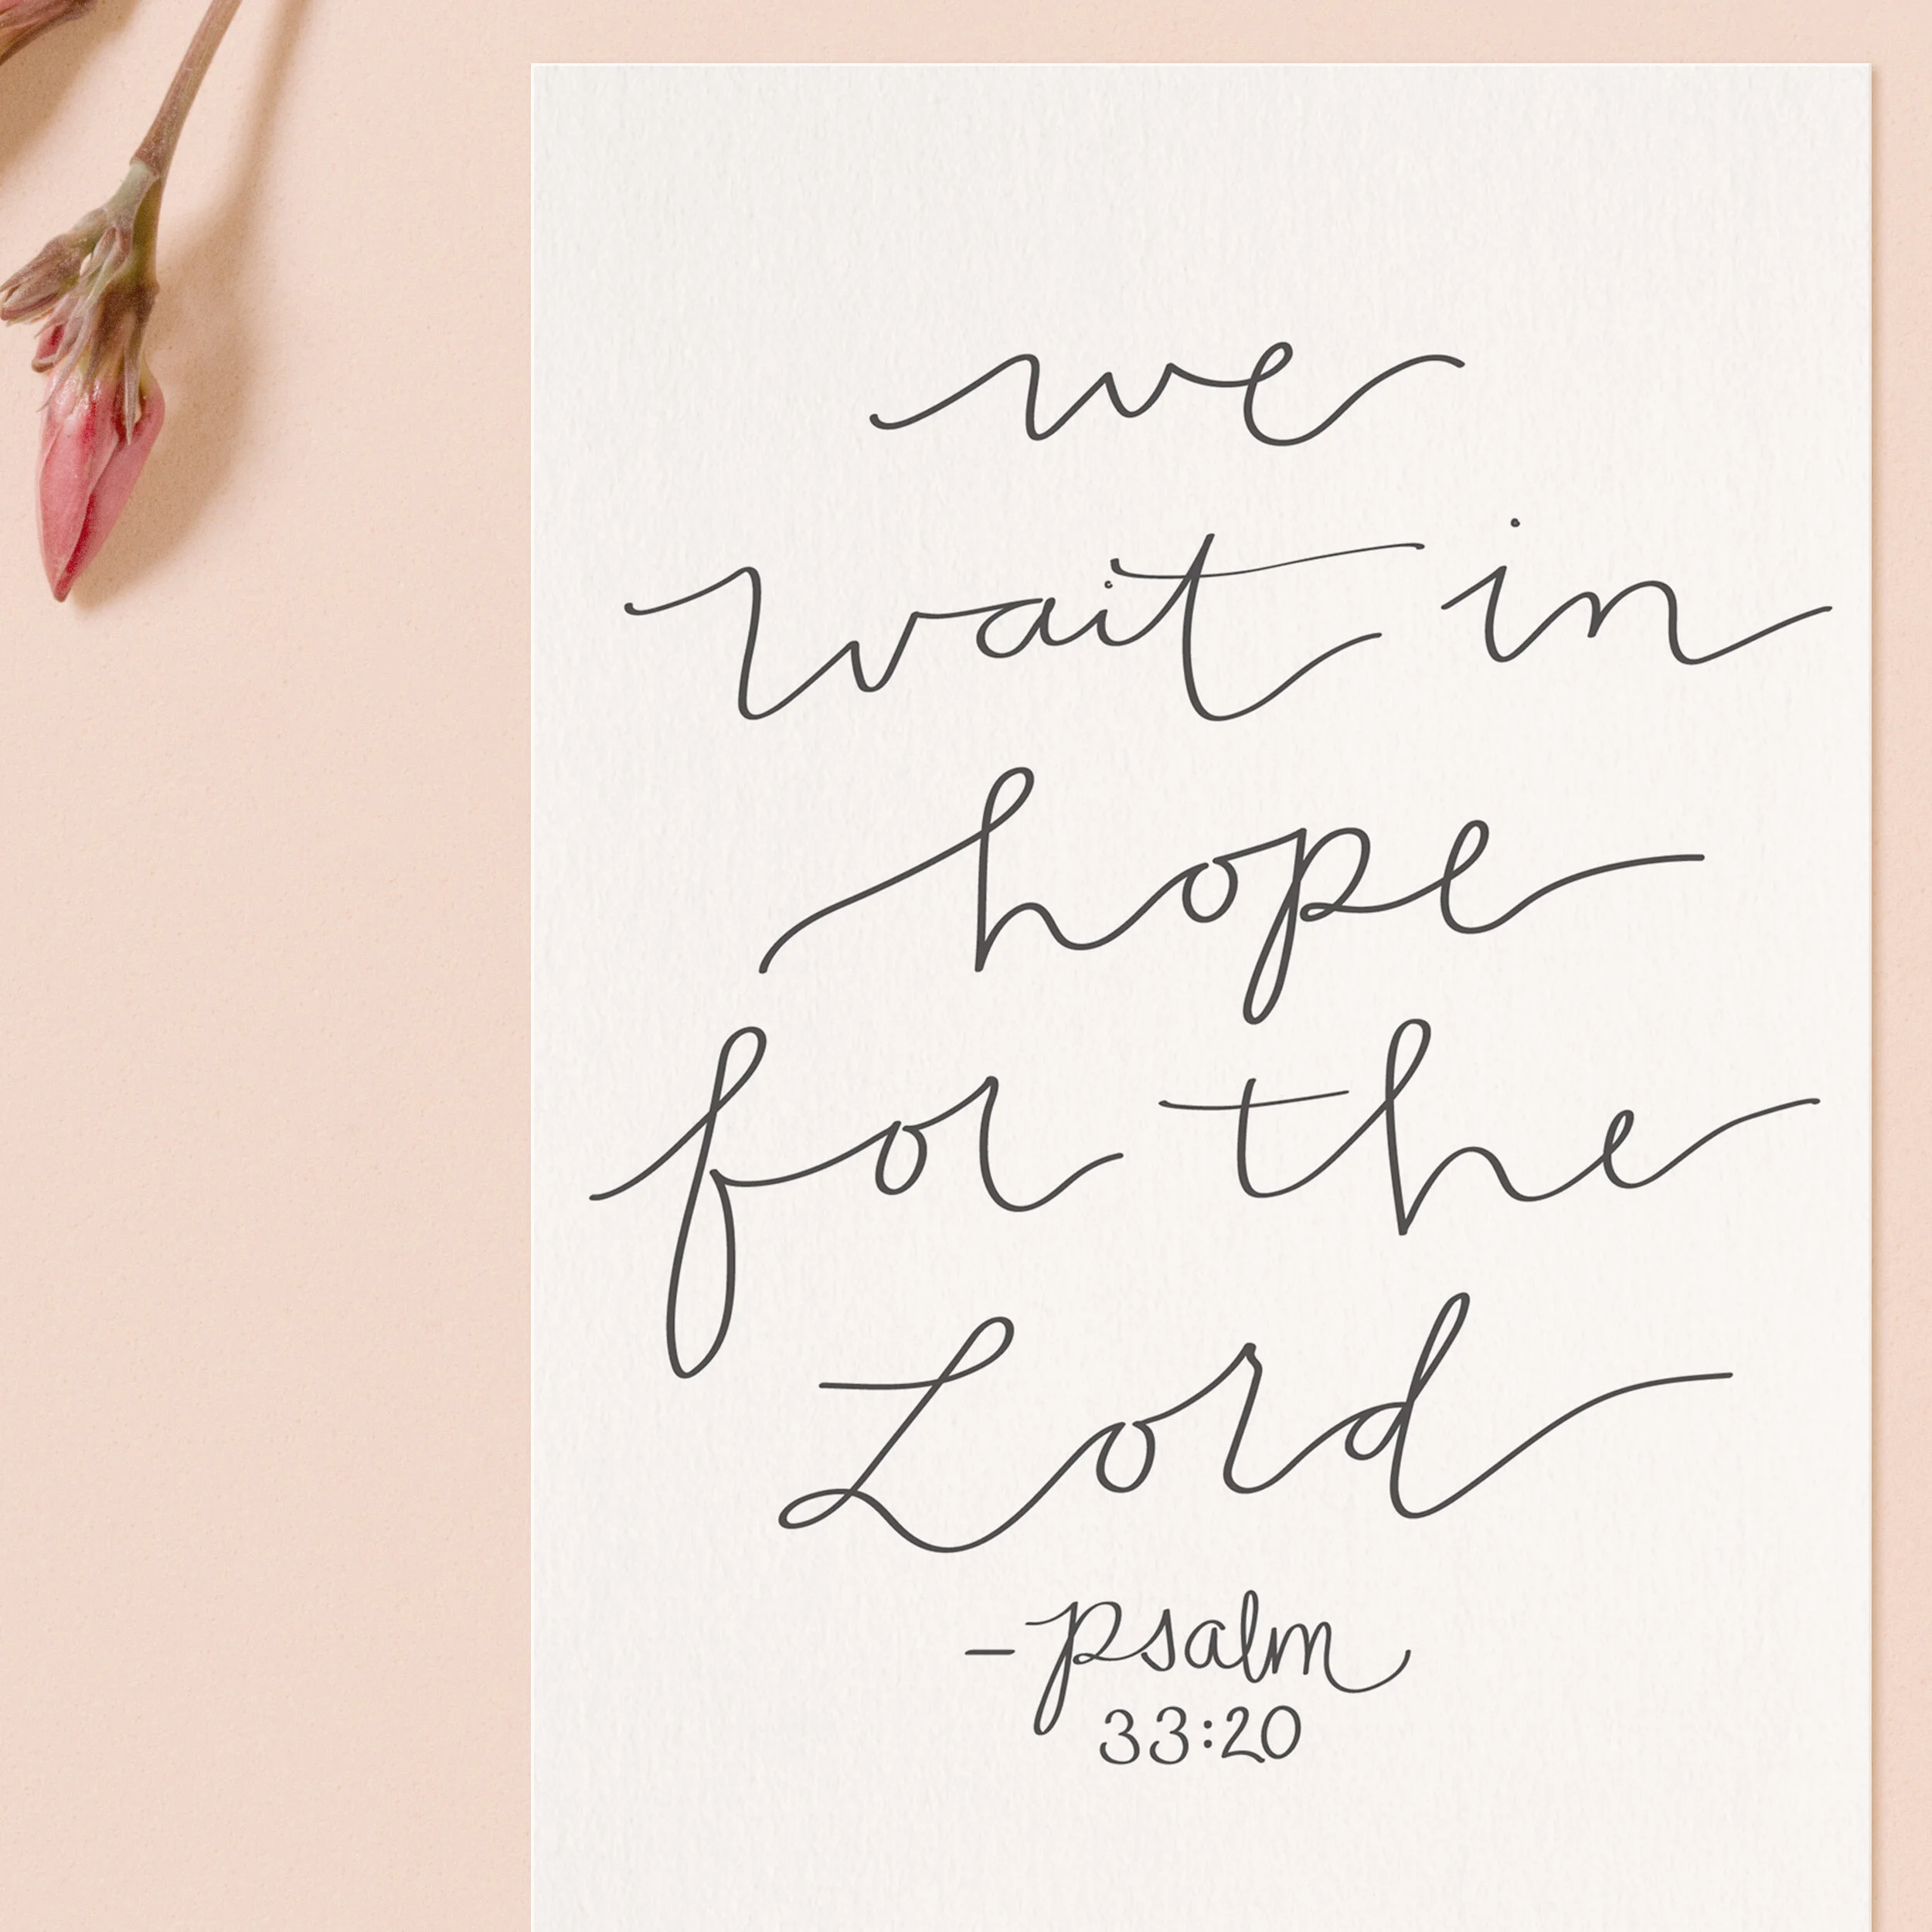 we
wait in
hope
for the
Lord
-psalm
33:20